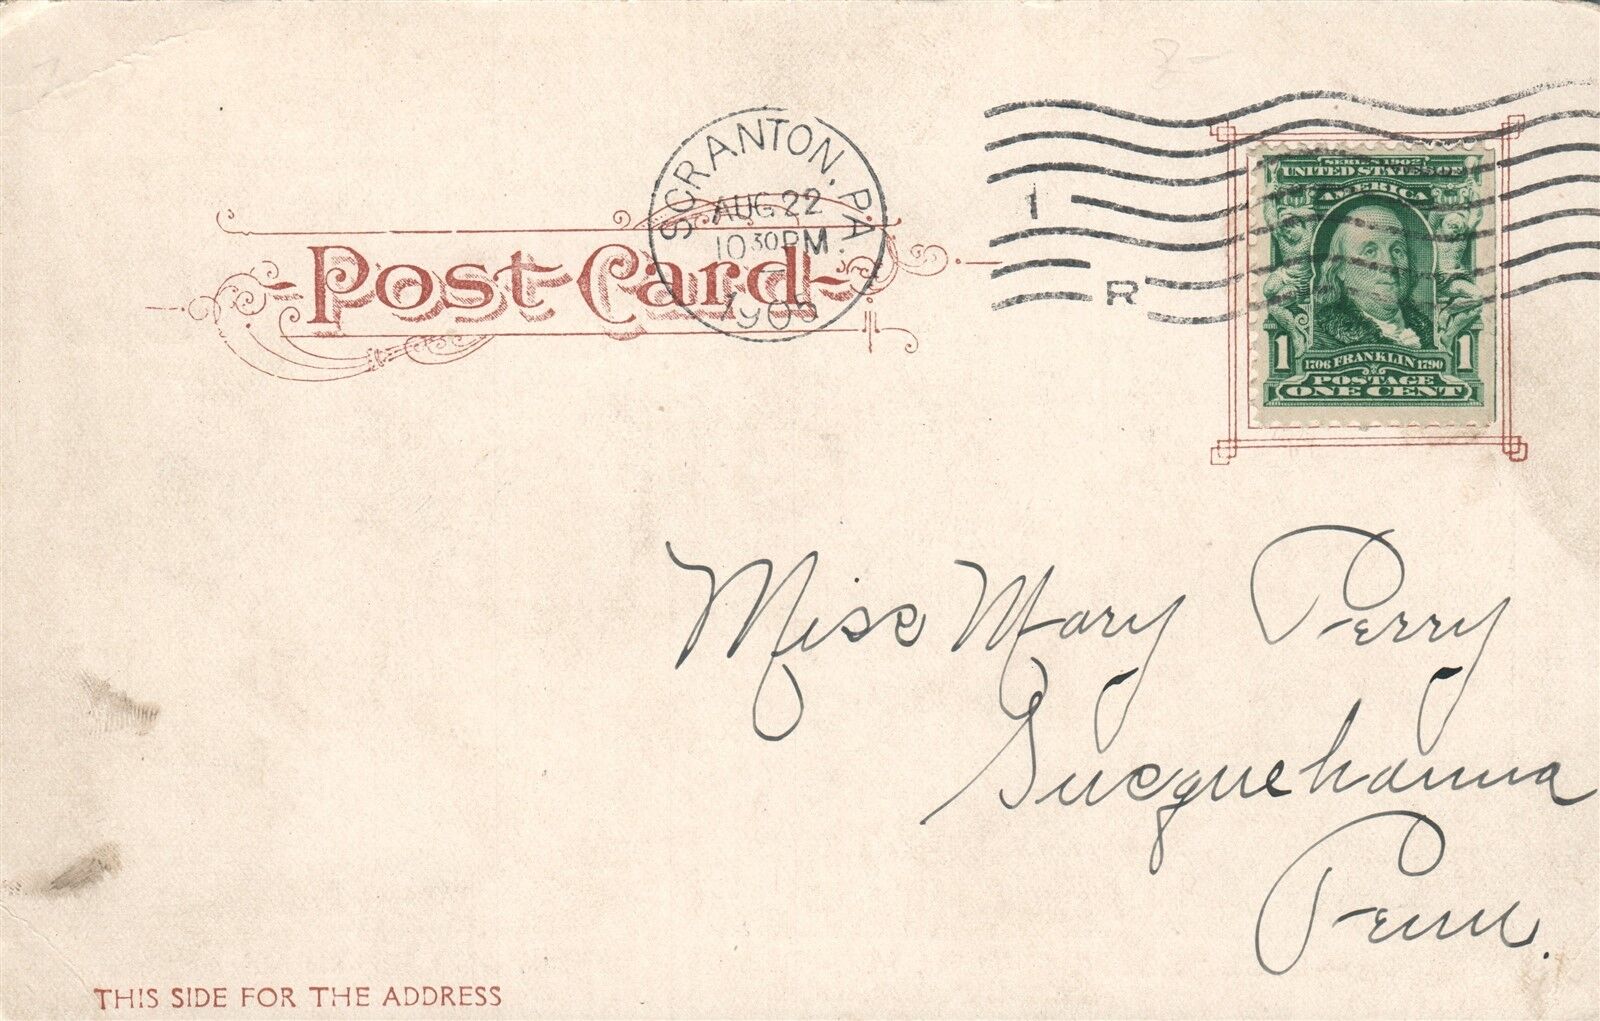 SCRANTON, PA.
AUG 22
10 30 PM
1905
1
R
Post Card
SERIES 1902
UNITED STATES OF
AMERICA
1 1
1706 FRANKLIN 1790
POSTAGE
ONE CENT
Miss Mary Perry
Susquehanna
Penn.
THIS SIDE FOR THE ADDRESS